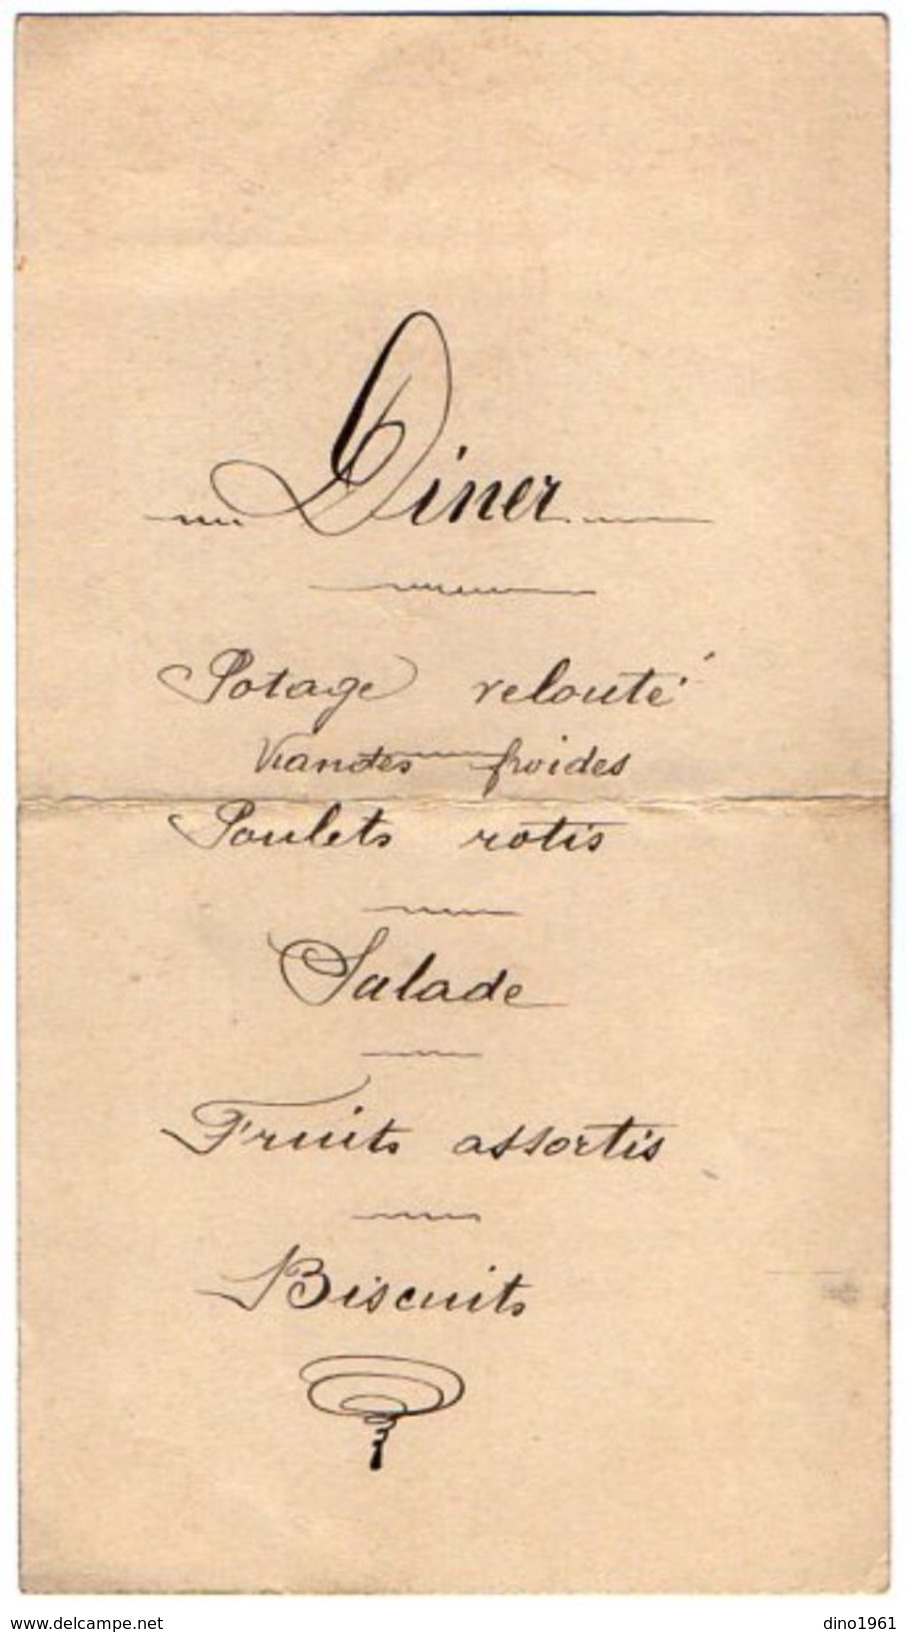 Diner
Potage velouté
Viandes froides
Poulets rotis
Salade
Fruits assortis
Biscuits
www.delcampe.net
dino1961